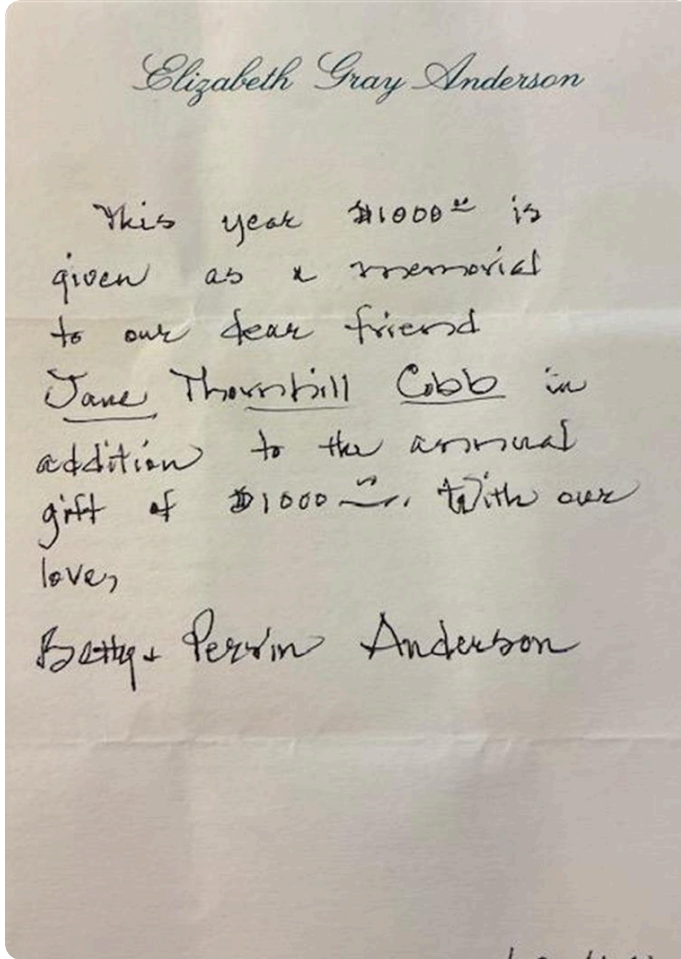 Elizabeth Gray Anderson
This year $1000.00 is
given as a memorial
to our dear friend
Jane Thornhill Cobb in
addition to the annual
gift of $1000 —. With our
love,
Betty + Perrin Anderson